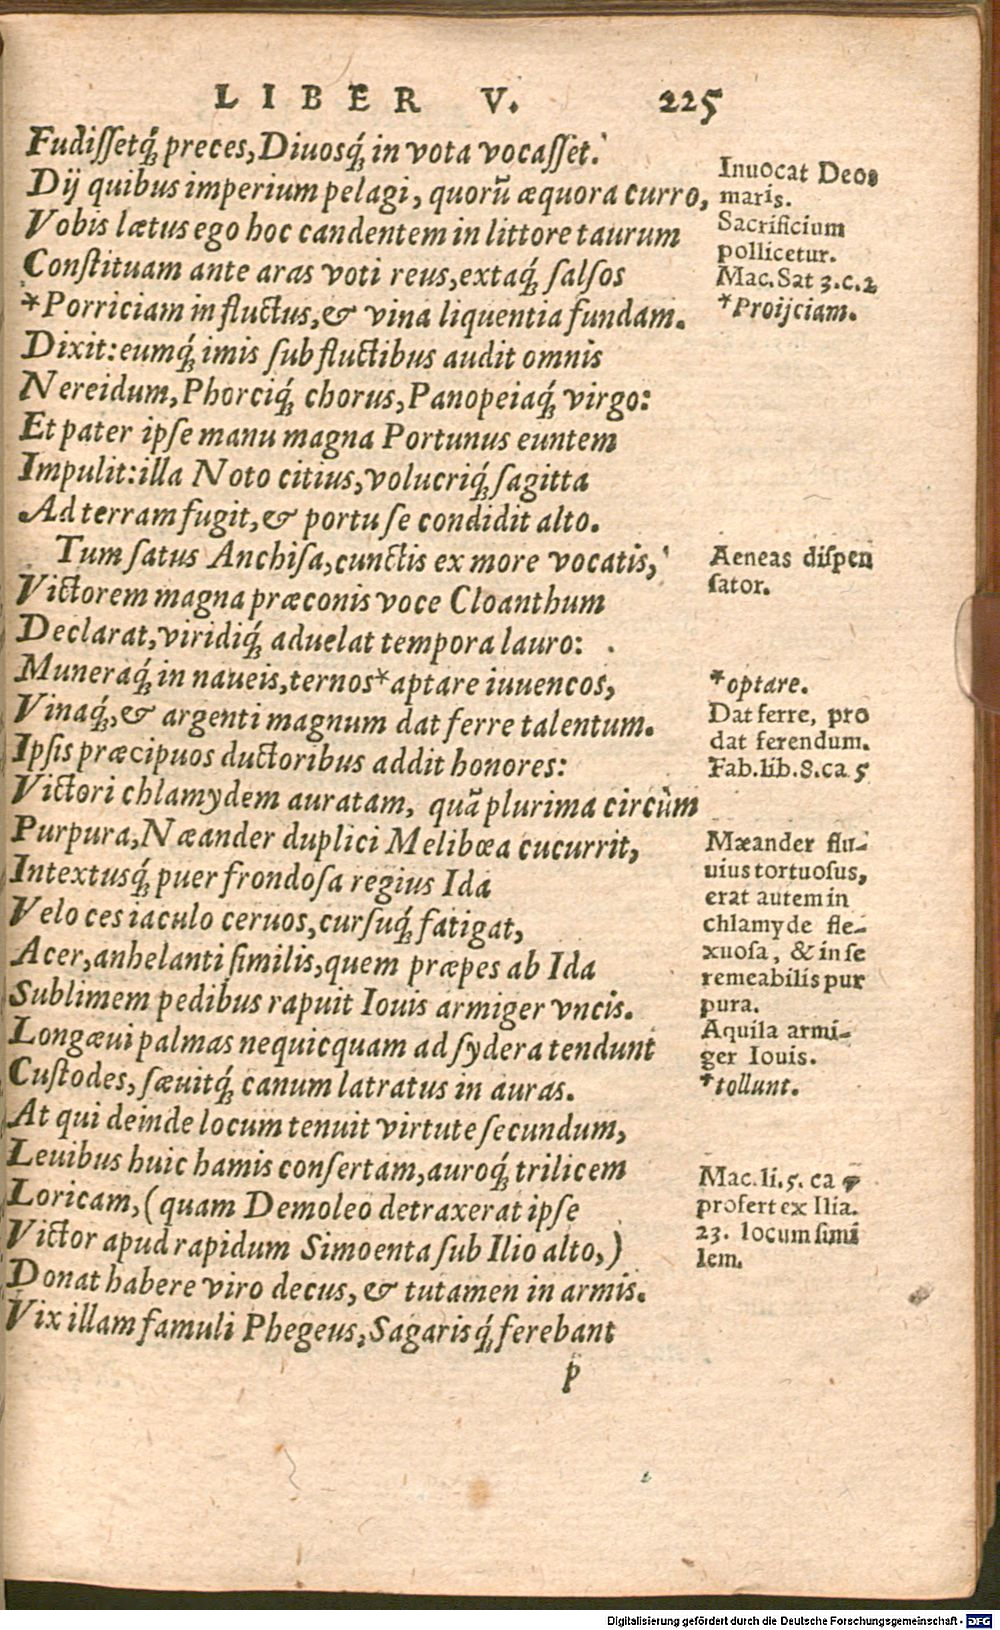 LIBER V. 225
Fudiſſetq́; preces, Diuosq́; in vota vocaſſet.
Dij quibus imperium pelagi, quorũ æquora curro,
Vobis lætus ego hoc candentem in littore taurum
Conſtituam ante aras voti reus, extaq́; ſalſos
*Porriciam in fluctus, & vina liquentia fundam.
Dixit: eumq́; imis ſub fluctibus audit omnis
Nereidum, Phorciq́; chorus, Panopeiaq́; virgo:
Et pater ipſe manu magna Portunus euntem
Impulit: illa Noto citius, volucriq́; ſagitta
Ad terram fugit, & portu ſe condidit alto.
Tum ſatus Anchiſa, cunctis ex more vocatis,
Victorem magna præconis voce Cloanthum
Declarat, viridiq́; aduelat tempora lauro:
Muneraq́; in naueis, ternos *aptare iuuencos,
Vinaq́;, & argenti magnum dat ferre talentum.
Ipſis præcipuos ductoribus addit honores:
Victori chlamydem auratam, quã plurima circùm
Purpura, Næander duplici Melibœa cucurrit,
Intextusq́; puer frondoſa regius Ida
Velo ces iaculo ceruos, curſuq́; fatigat,
Acer, anhelanti ſimilis, quem præpes ab Ida
Sublimem pedibus rapuit Iouis armiger vncis.
Longæui palmas nequicquam ad ſydera tendunt
Cuſtodes, ſæuitq́; canum latratus in auras.
At qui deinde locum tenuit virtute ſecundum,
Leuibus huic hamis conſertam, auroq́; trilicem
Loricam, (quam Demoleo detraxerat ipſe
Victor apud rapidum Simoenta ſub Ilio alto,)
Donat habere viro decus, & tutamen in armis.
Vix illam famuli Phegeus, Sagarisq́; ferebant
p
Inuocat Deos
maris.
Sacrificium
pollicetur.
Mac. Sat 3. c. 2
*Proijciam.
Aeneas diſpen
ſator.
*optare.
Dat ferre, pro
dat ferendum.
Fab. lib. 8. ca 5
Mæander flu-
uius tortuoſus,
erat autem in
chlamyde fle-
xuoſa, & in ſe
remeabilis pur
pura.
Aquila armi-
ger Iouis.
*tollunt.
Mac. li. 5. ca
profert ex Ilia.
23. locum ſimi
lem.
Digitalisierung gefördert durch die Deutsche Forschungsgemeinschaft - DFG